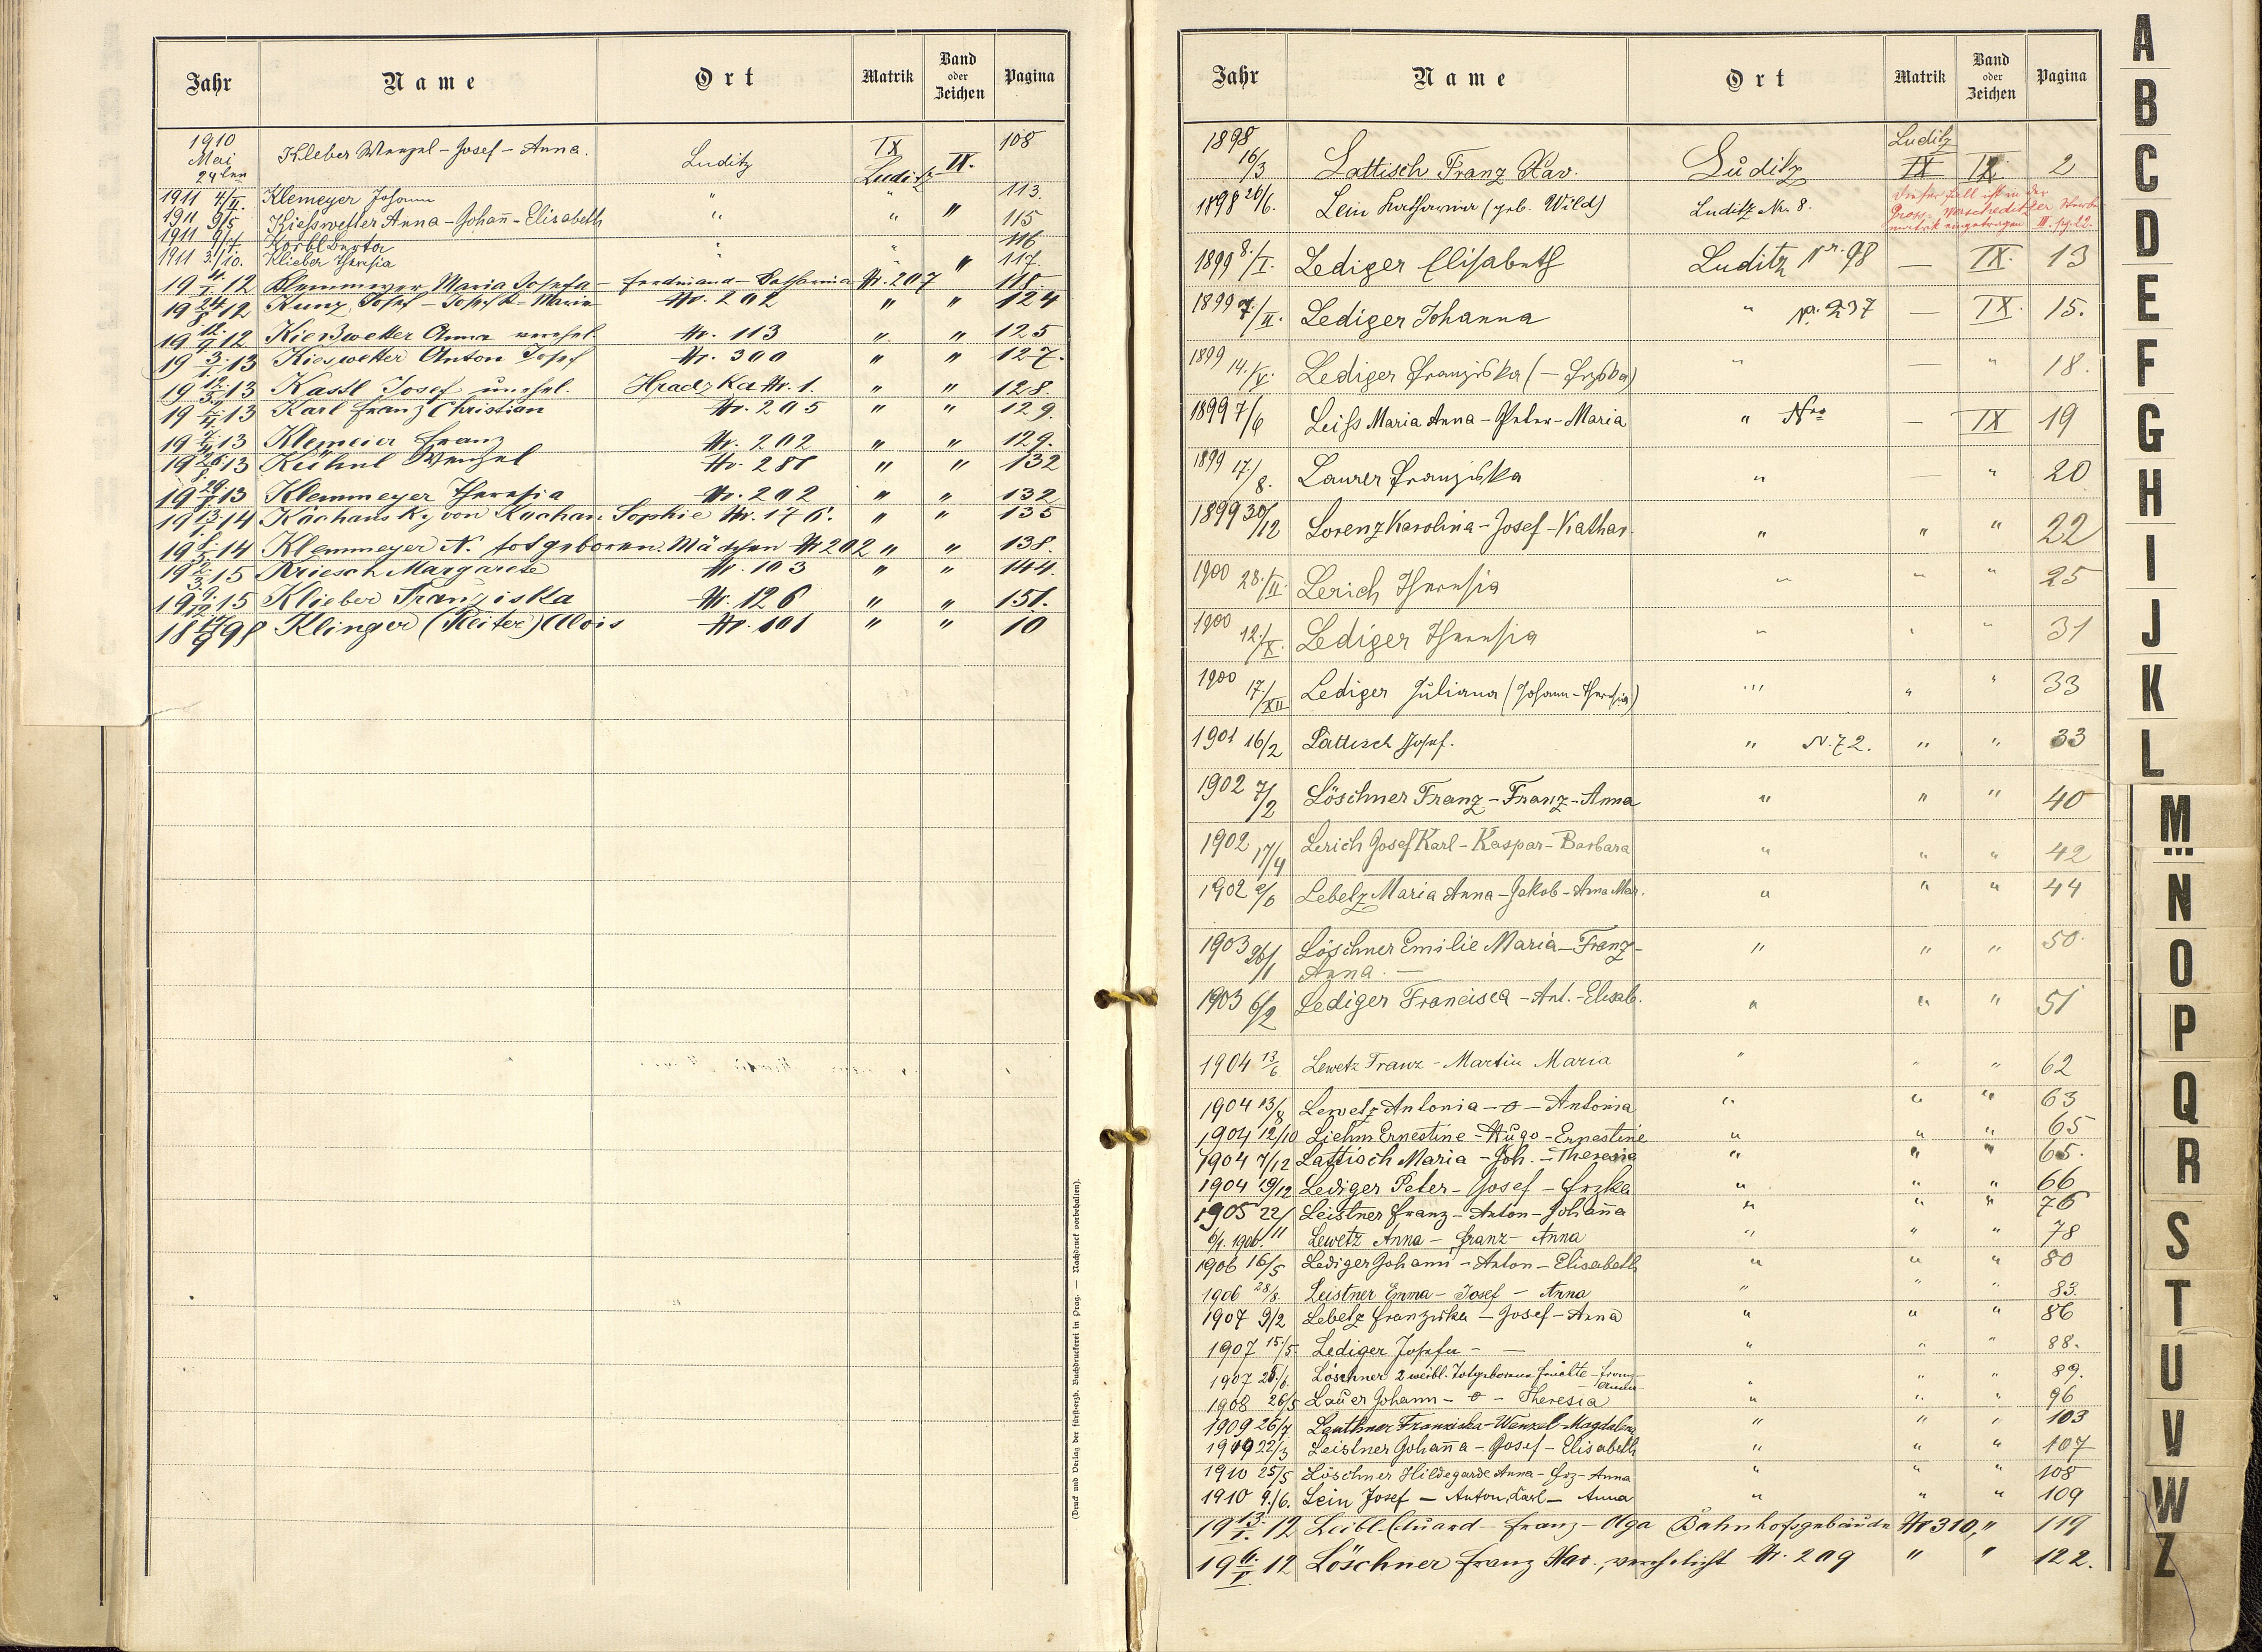 Jahr Name Ort Matrik Band oder Zeichen Pagina
1910 Mai 24ten Kleber Wenzel - Josef - Anna. Luditz IX Luditz IX. 108
1911 4/II. Klemeyer Johann " " 113.
1911 9/5 Kiesswetter Anna - Johañ - Elisabeth " " " 115
1911 9/7. Körbl Berta " " 116
1911 3./10. Klieber Theresia " " " 117.
19 4./I. 12 Klemmeyer Maria Josefa - Ferdinand - Katharina Nr. 207 118.
19 24/8 12 Kunz Josef - Josef K - Maria Nr. 202 " " 124
19 12./9 12 Kießwetter Anna verehel. Nr. 113 " " 125
19 3./1. 13 Kieswetter Anton Josef Nr. 300 " " 127.
19 12./3. 13 Kastl Josef unehel. Hradzka Nr. 1. " " 128.
19 13 Karl Franz Christian Nr. 205 " " 129.
19 13 Klemeier Franz Nr. 202 " " 129.
19 26./8. 13 Kühnl Wenzel Nr. 281 " " 132
19 29. 13 Klemmeyer Theresia Nr. 202 " " 132
19 13./1. 14 Káchansky von Kachan Sophie Nr. 176. " " 135
19 14 Klemmeyer N. totgeboren. Mädchen Nr 202 " " 138.
19 2./3. 15 Kriesch Margarete Nr. 103 " " 144.
19 9./12. 15 Klieber Franziska Nr. 126 " " 151.
18 17/9 98 Klinger (Reiter) Alois Nr. 101 " " 10
(Druck und Verlag der fürsterzb. Buchdruckerei in Prag. — Nachdruck vorbehalten).
Jahr Name Ort Matrik Band oder Zeichen Pagina
1898 16/3 Lattisch Franz Xav. Luditz Luditz IX IX. 2
1898 26/6. Lein Katharina (geb. Wild) Luditz Nr. 8. Dieser Fall ist in der
matrik eingetragen III. pg. 22.
1899 8./I. Lediger Elisabeth Luditz Nr. 98 — IX. 13
1899 7./II. Lediger Johanna " Nr. 237 — IX. 15.
1899 14./V. Lediger Franziska (— Frziska) " — " 18.
1899 7/6 Leiss Maria Anna - Peter - Maria " Nro — IX 19
1899 17./8. Laurer Franziska " — " 20
1899 30/12 Lorenz Karolina - Josef - Kathar. " " " 22
1900 28./II. Lerich Theresia " " " 25
1900 12./X. Lediger Theresia " " " 31
1900 17./XII Lediger Juliana (Johann - Theresia) " " " 33
1901 16/2 Lattisch Josef. " N. 72. " " 33
1902 7/2 Löschner Franz - Franz - Anna " " " 40
1902 17/4 Lerich Josef Karl - Kaspar - Barbara " " " 42
1902 2/6 Lebelz Maria Anna - Jakob - Anna Mar. " " " 44
1903 26/1 Löschner Emilie Maria - Franz -
Anna. — " " " 50.
1903 6/2 Lediger Francisca - Ant. - Elisab. " " " 51
1904 13/6 Lewetz Franz - Martin Maria " " " 62
1904 13/8 Lewetz Antonia - o - Antonia " " " 63
1904 12/10 Liehm Ernestine - Hugo - Ernestine " " " 65
1904 7/12 Lattisch Maria - Joh. - Theresia " " " 65.
1904 19/12 Lediger Peter - Josef - Frzka " " " 66
1905 22/11 Leistner Franz - Anton - Johaña " " " 76
6/1. 1906 Lewetz Anna - Franz - Anna " " " 78
1906 16/5 Lediger Johann - Anton - Elisabeth " " " 80
1906 28/8. Leistner Emma - Josef - Anna " " " 83.
1907 9/2 Lebelz Franziska - Josef - Anna " " " 86
1907 15/5. Lediger Josefa - — " " " 88.
1907 28./6. Löschner 2 weibl. Totgeborene Früchte - Franz - " " " 89.
1908 26/5 Lauer Johann - o - Theresia " " " 96
1909 26/7 Lauthner Franziska - Wenzel - Magdalena " " " 103
1910 22/3 Leistner Johaña - Josef - Elisabeth " " " 107
1910 25/5 Löschner Hildegarde Anna - Frz - Anna " " " 108
1910 9./6. Lein Josef - Anton, Karl - Anna " " " 109
19 13./I. 12 Leibl Eduard - Franz - Olga Bahnhofsgebäude Nr 310, " 119
19 6./V. 12 Löschner Franz Xav., verehelicht Nr. 209 " " 122.
A
B
C
D
E
F
G
H
I
J
K
L
M
N
O
P
Q
R
S
T
U
V
W
Z